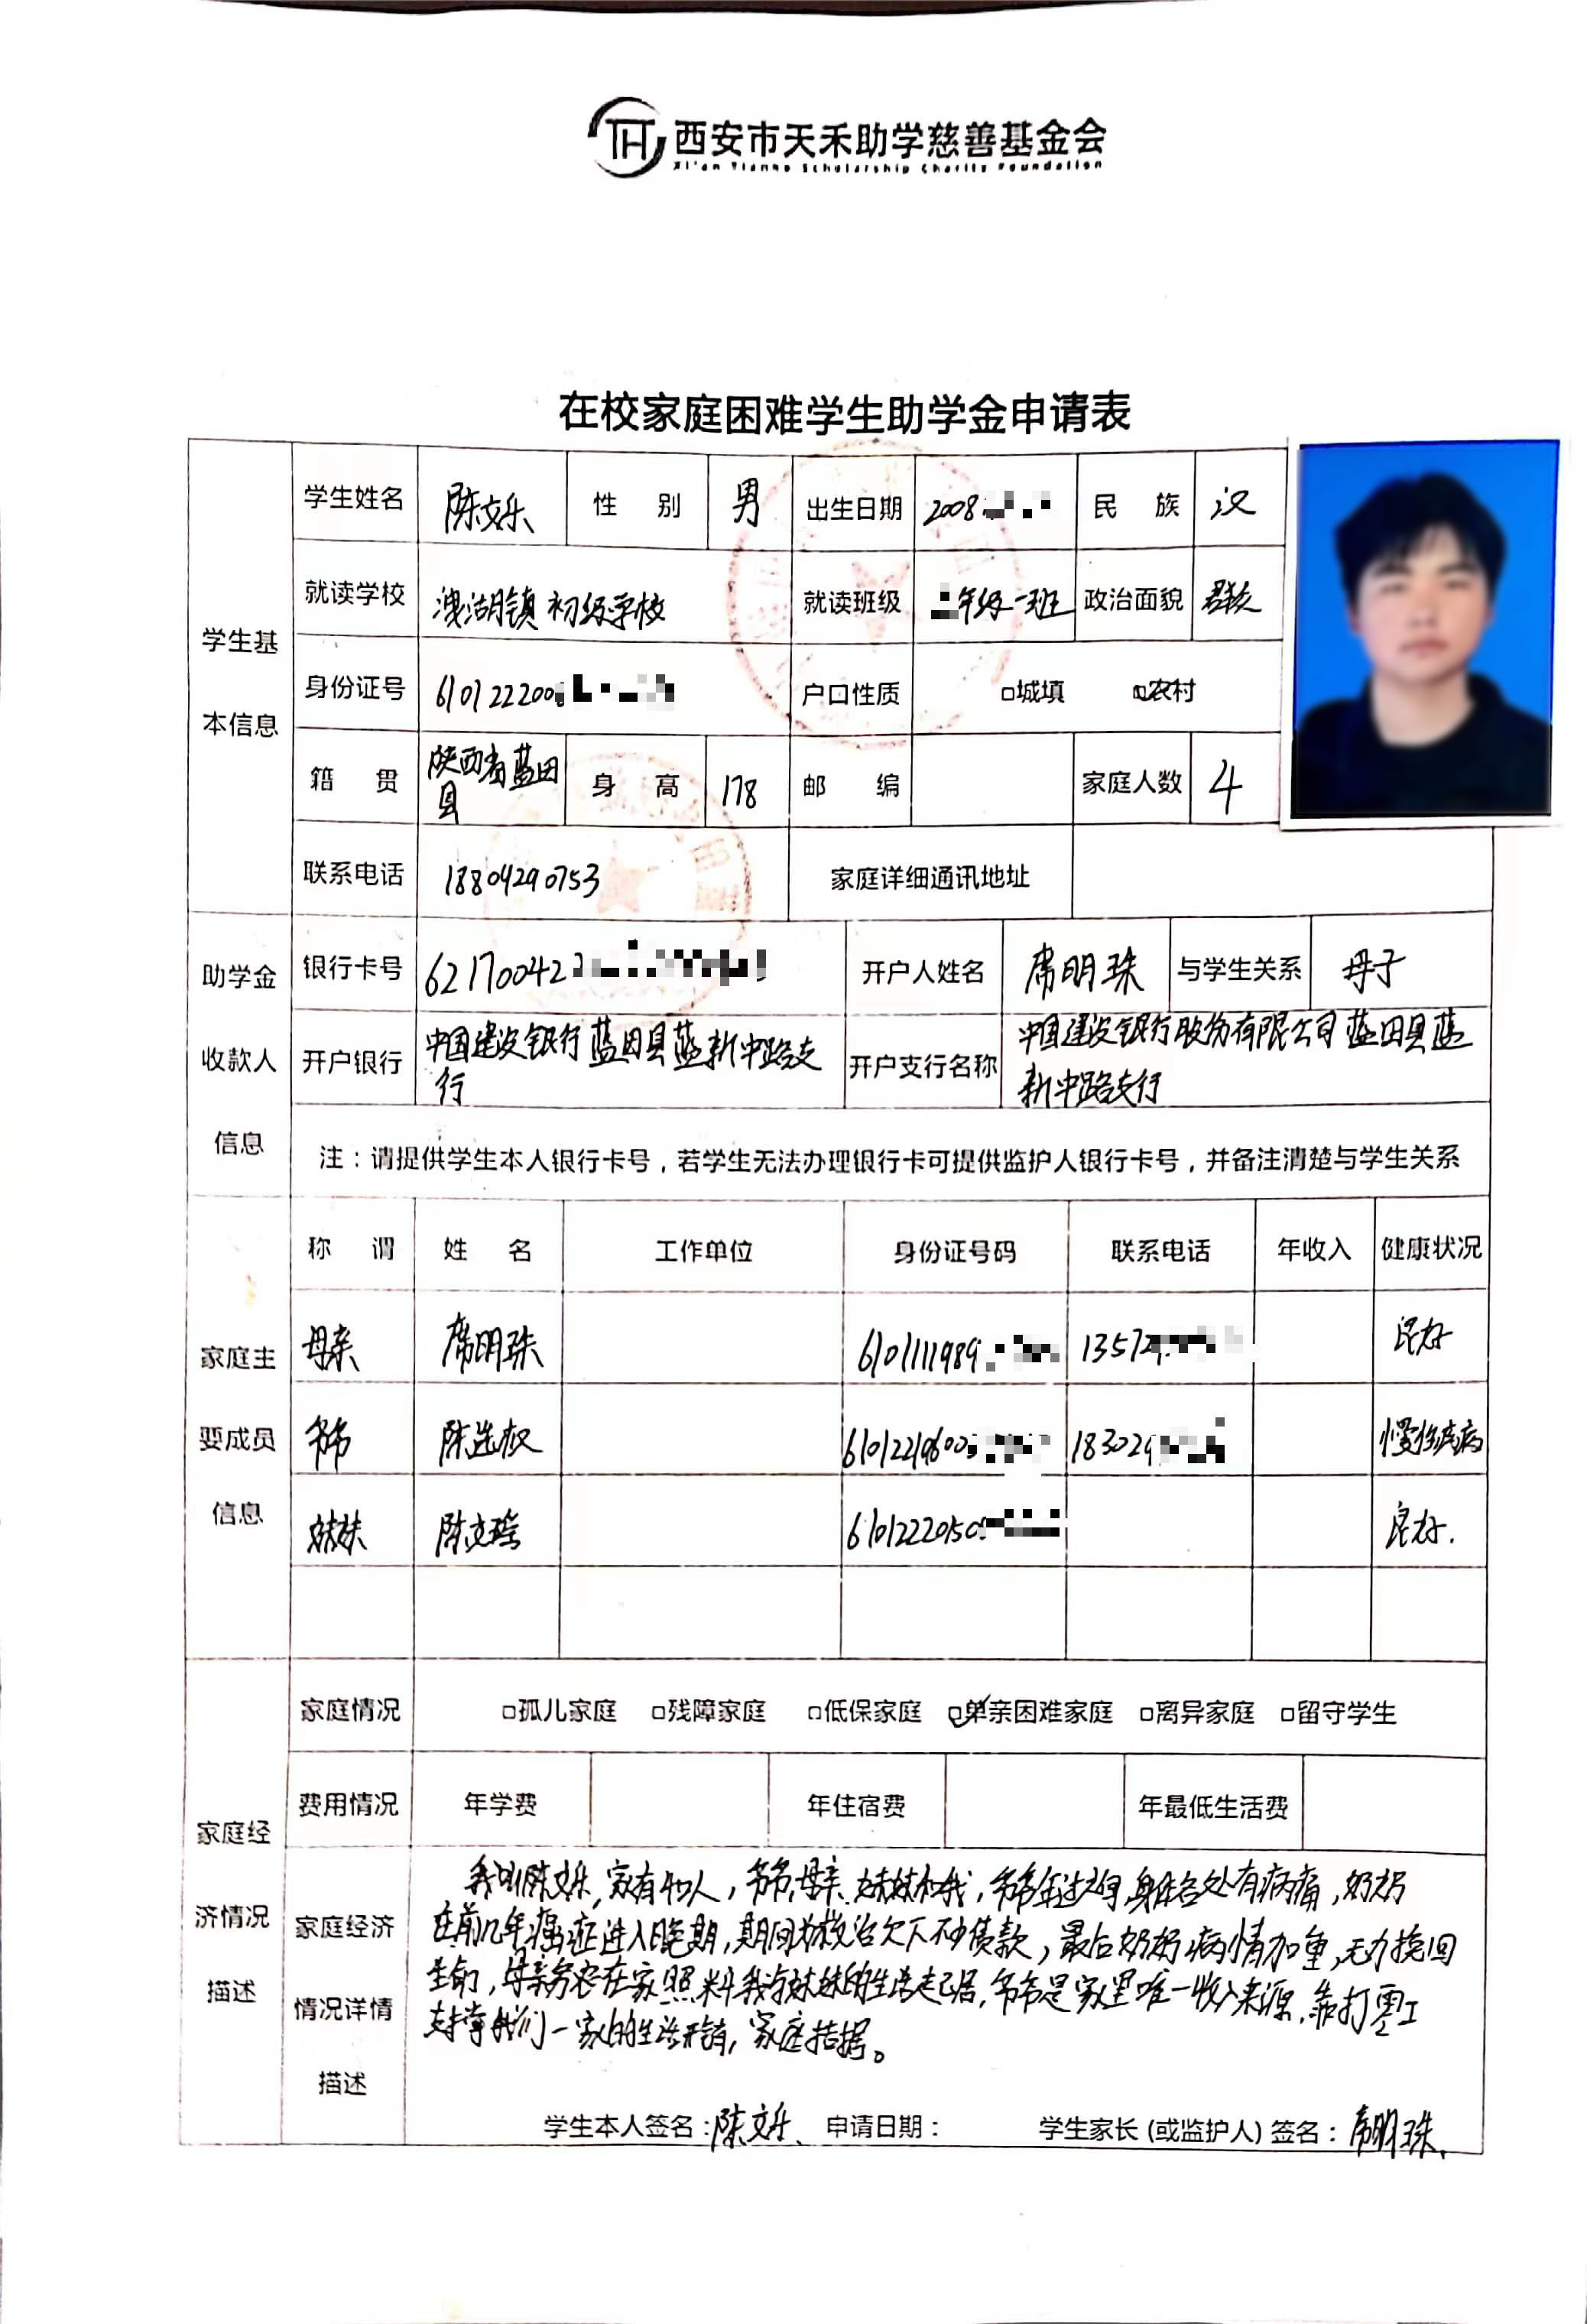 西安市天禾助学慈善基金会
Xi'an Tianhe Scholarship Charity Foundation
在校家庭困难学生助学金申请表
学生基本信息
学生姓名 陈文乐 性别 男 出生日期 2008. 民族 汉
就读学校 洩湖镇初级学校 就读班级 年级一班 政治面貌 群众
身份证号 610122200 户口性质 □城填 ☑农村
籍贯 陕西省蓝田县 身高 178 邮编 家庭人数 4
联系电话 18804290753 家庭详细通讯地址
助学金收款人信息
银行卡号 621700422 开户人姓名 席明珠 与学生关系 母子
开户银行 中国建设银行蓝田县蓝新中路支行 开户支行名称 中国建设银行股份有限公司蓝田县蓝新中路支行
注：请提供学生本人银行卡号，若学生无法办理银行卡可提供监护人银行卡号，并备注清楚与学生关系
家庭主要成员信息
称谓 姓名 工作单位 身份证号码 联系电话 年收入 健康状况
母亲 席明珠 6101111989 13572 良好
爷爷 陈选权 610122196002 183029 慢性疾病
妹妹 陈文瑶 61012220150 良好.
家庭经济情况描述
家庭情况 □孤儿家庭 □残障家庭 □低保家庭 ☑单亲困难家庭 □离异家庭 □留守学生
费用情况 年学费 年住宿费 年最低生活费
家庭经济情况详情描述
我叫陈文乐,家有四人，爷爷,母亲.妹妹和我，爷爷年过,身体各处有病痛，奶奶
在前几年癌症进入晚期，期间为救治欠下不少债款，最后奶奶病情加重，无力挽回
生命，母亲务农在家照料我与妹妹的生活起居，爷爷是家里唯一收入来源，靠打零工
支撑我们一家的生活开销，家庭拮据。
学生本人签名：陈文乐 申请日期： 学生家长（或监护人）签名：席明珠